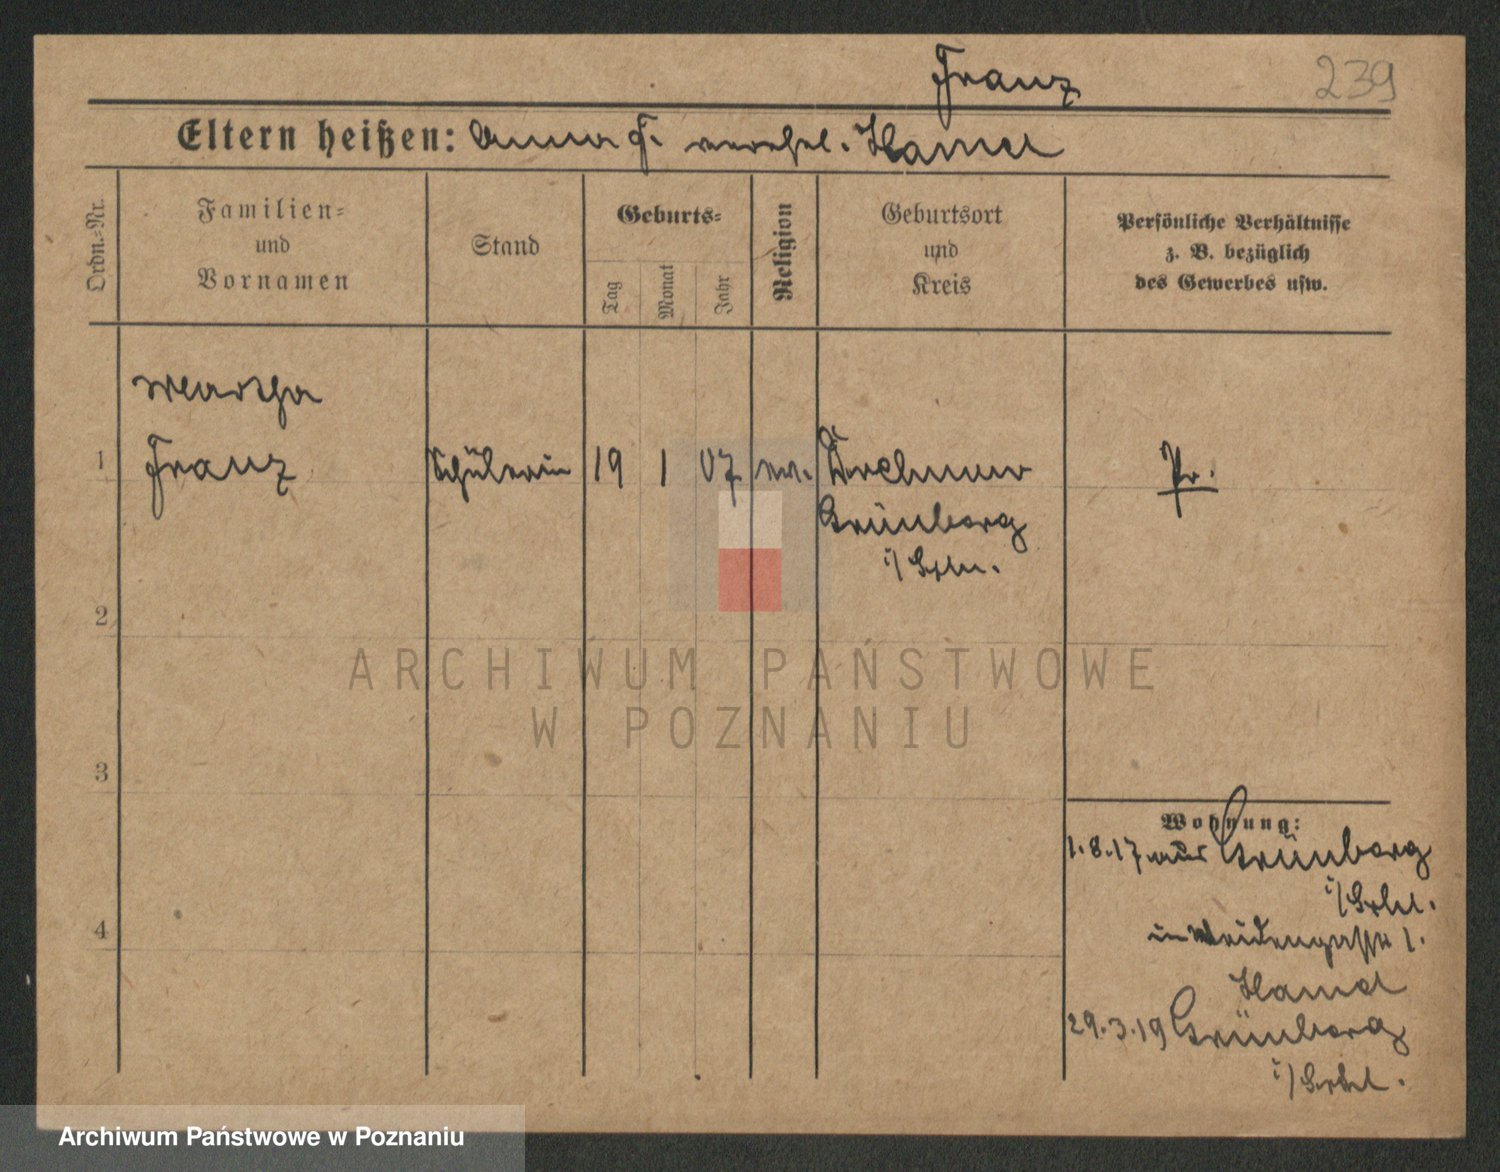 Franz
239
Eltern heißen: Anna F. verehel. Hamel
Ordn.-Nr.
Familien-
und
Vornamen
Stand
Geburts-
Tag
Monat
Jahr
Religion
Geburtsort
und
Kreis
Persönliche Verhältnisse
z. B. bezüglich
des Gewerbes usw.
Martha
1 Franz Schülerin 19 1 07 ev. Pr.
Grünberg
i/Schl.
2
ARCHIWUM PAŃSTWOWE
W POZNANIU
3
Wohnung:
1.8.17 aus Grünberg
i/Schl.
in Weidengasse 1.
4
Hamel
29.3.19 Grünberg
i/Schl.
Archiwum Państwowe w Poznaniu